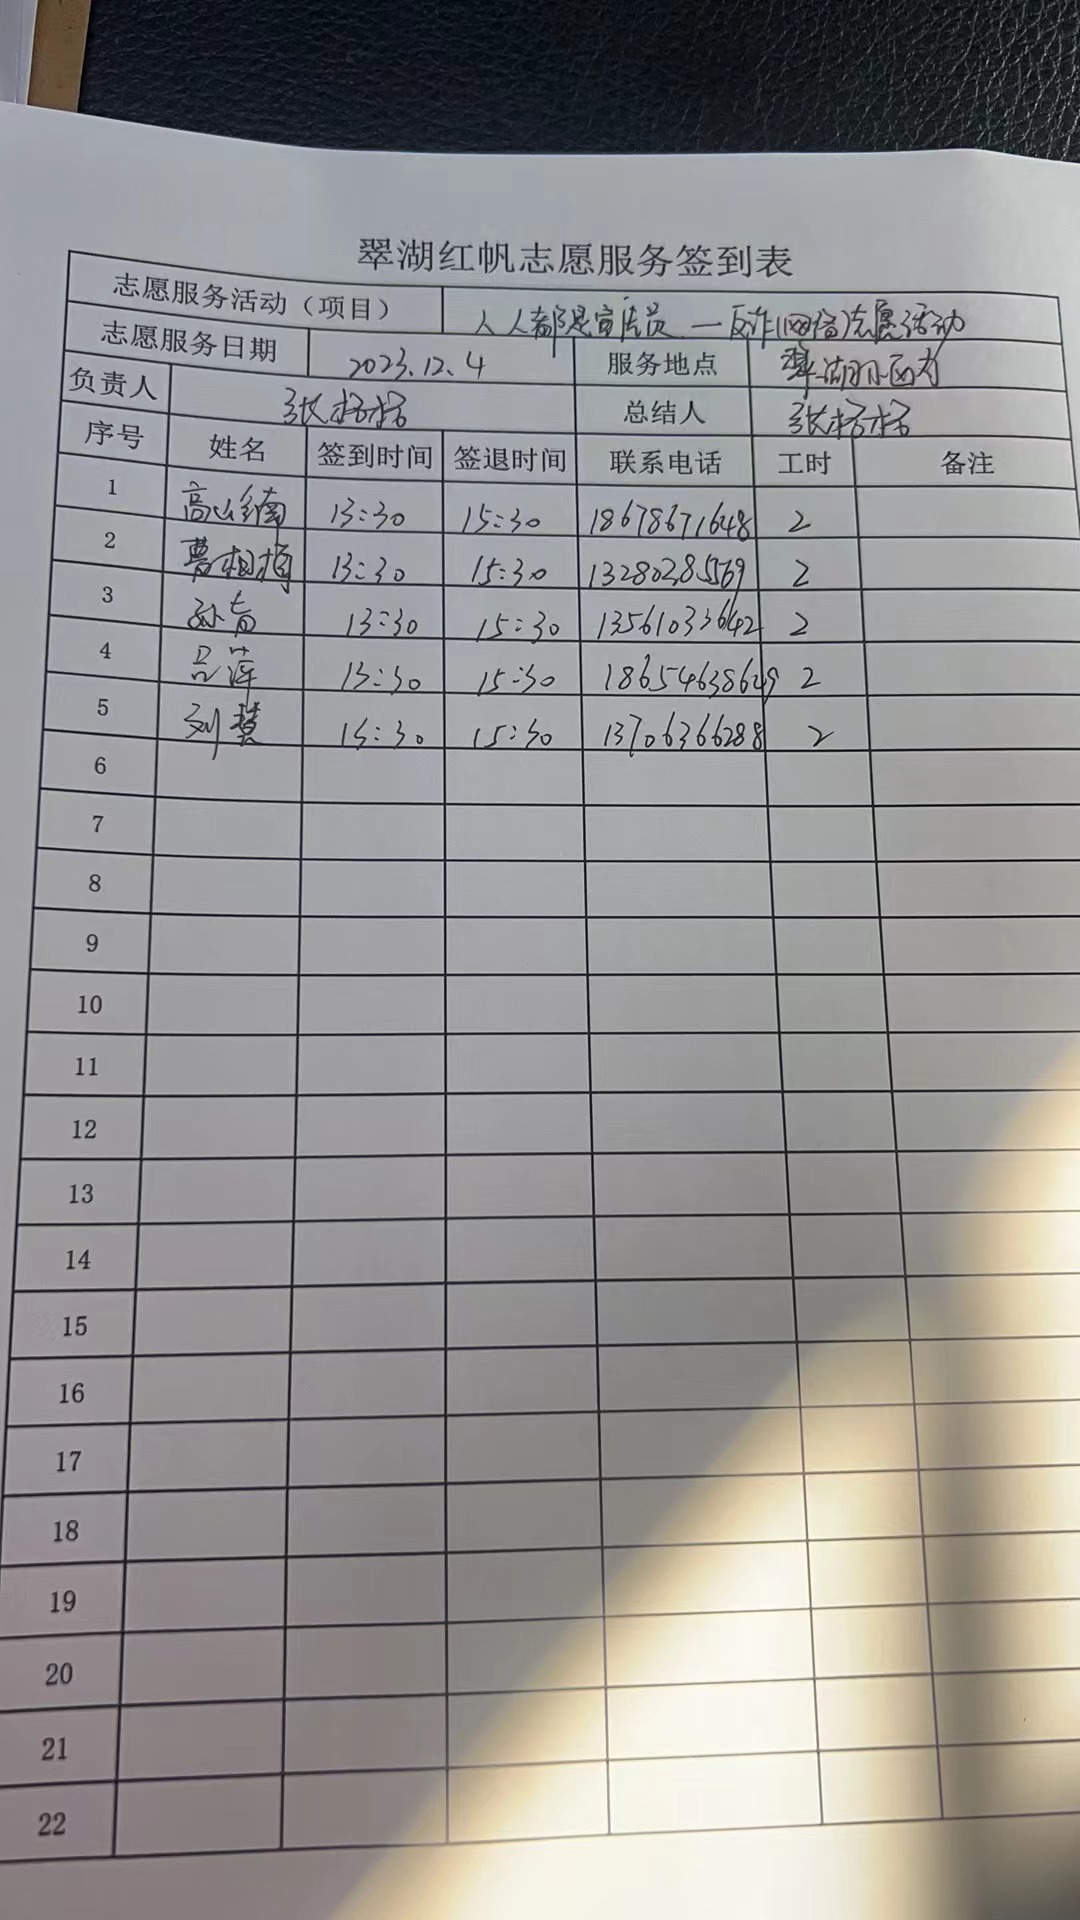 翠湖红帆志愿服务签到表
志愿服务活动（项目） 人人都是宣传员—反诈网络志愿活动
志愿服务日期 2023.12.4 服务地点 翠湖小区内
负责人 张格格 总结人 张格格
序号 姓名 签到时间 签退时间 联系电话 工时 备注
1 高山 13:30 15:30 18678671648 2
2 曹 13:30 15:30 13280285569 2
3 孙青 13:30 15:30 13561033642 2
4 吕萍 13:30 15:30 18654638629 2
5 刘慧 13:30 15:30 13706366288 2
6
7
8
9
10
11
12
13
14
15
16
17
18
19
20
21
22